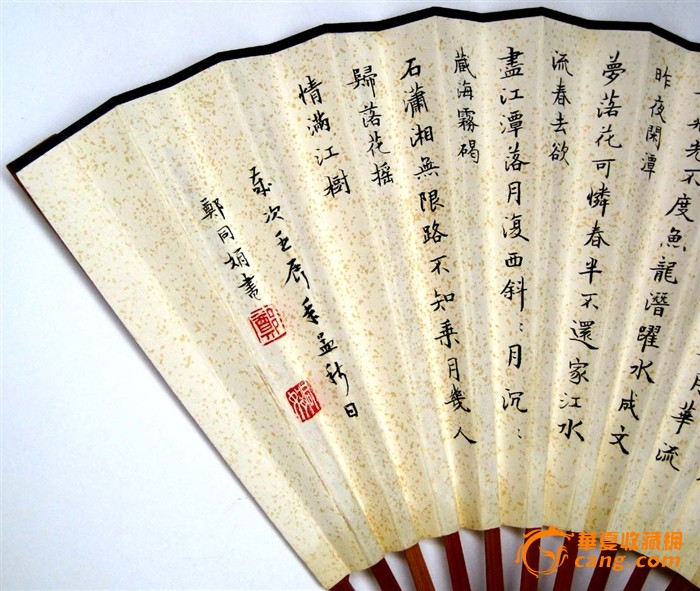 月華流
光不度魚龍潛躍水成文
昨夜閑潭
夢落花可憐春半不還家江水
流春去欲
盡江潭落月復西斜:月沉:
藏海霧碣
石瀟湘無限路不知乘月幾人
歸落花搖
情滿江樹
歲次壬辰年孟秋日
鄭同娟書
鄭
華夏收藏網
cang.com